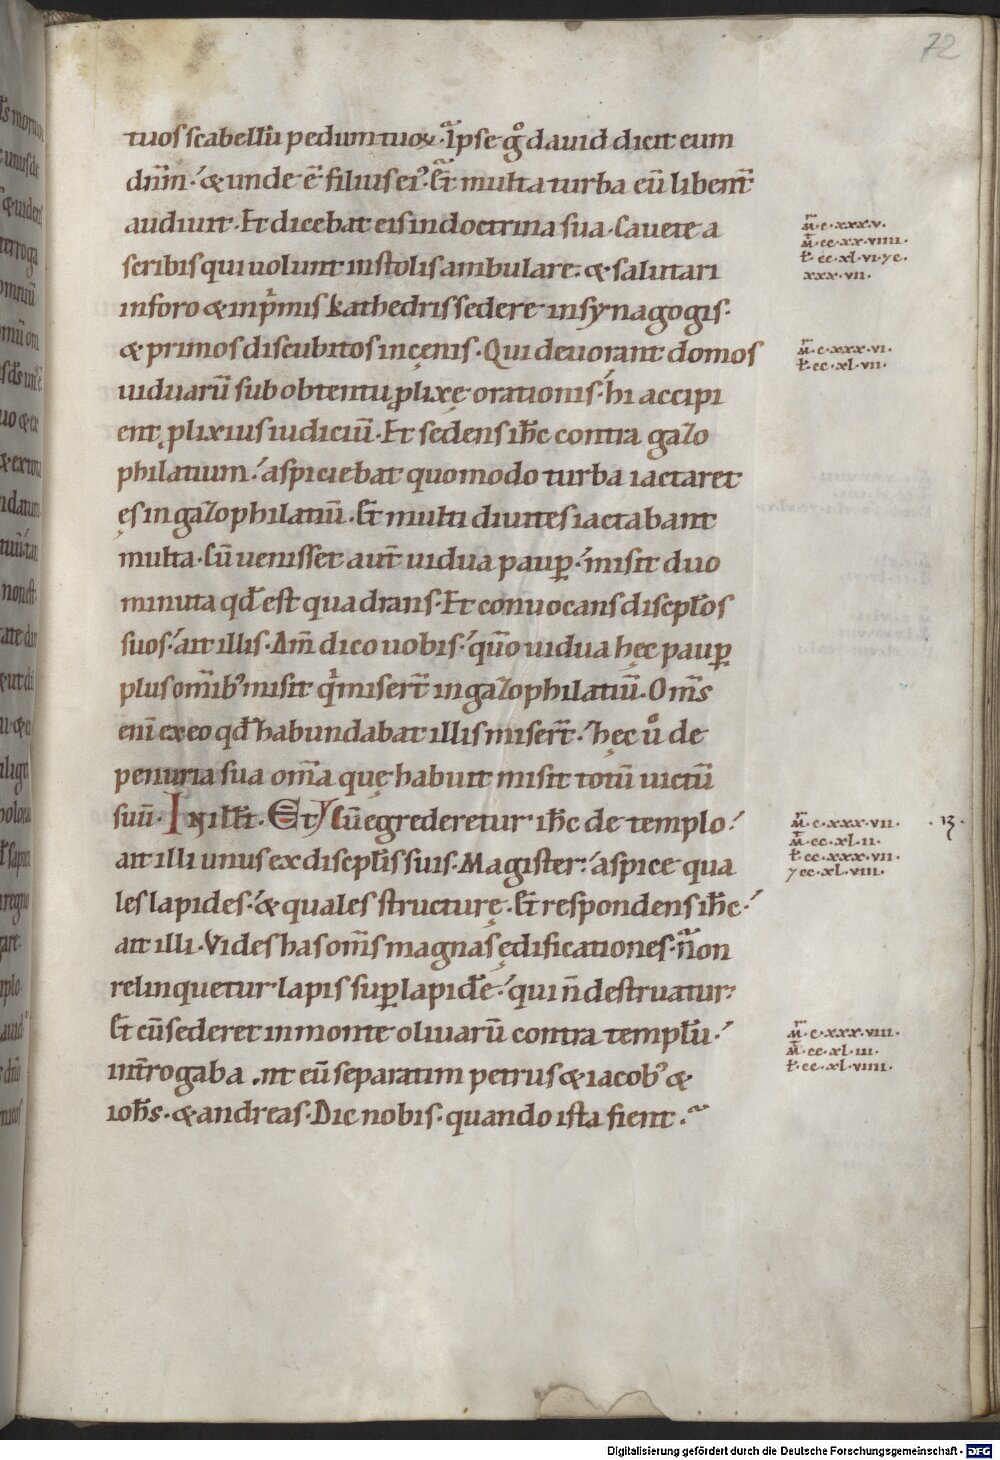 72
tuos scabellū pedum tuoꝝ. Ipse g̊ dauid dicit eum
dn̄m. & unde ē filius ei᾽. Et multa turba eū libent̄
audiuit. Et dicebat eis in doctrina sua. Cauete a
scribis qui uolunt in stolis ambulare. & salutari
in foro & in p̍mis kathedris sedere in synagogis.
& primos discubitos in cęnis. Qui deuorant domos
uiduarū sub obtentu ꝓlixę orationis. hi accipi
ent ꝓlixius iudiciū. Et sedens ih̄c contra gazo
philatium. aspiciebat quomodo turba iactaret
ęs in gazophilatiū. Et multi diuites iactabant
multa. Cū uenisset aut̄ uidua pauꝑ. misit duo
minuta qd̄ est quadrans. Et conuocans discipl̄os
suos. ait illis. Am̄ dico uobis. qm̄o uidua hęc pauꝑ
plus om̄ib᾽ misit q̍ miser̄t in gazophilatiū. Om̄s
eni̅ ex eo qd̄ habundabat illis miser̄t. hęc ů de
penuria sua om̄a quę habuit misit totū uictū
suū. In ill̄t. Et Cū egrederetur ih̄c de templo.
ait illi unus ex discipl̄is suis. Magister. aspice qua
les lapides. & quales structurę. Et respondens ih̄c.
ait illi. Vides has om̄s magnas ędificationes. non
relinquetur lapis suꝑ lapidē. qui n̄ destruatur.
Et cū sederet in monte oliuarū contra templ̄u.
int̄rogaba nt eū separatim petrus & iacob᾽ &
ioh̄s. & andreas. Dic nobis. quando ista fient.
m̄.c.xxx.v.
m̄.cc.xx.viiii.
ł.cc.xl.vi.⁊c.
xxx.vii.
m̄.c.xxx.vi.
ł.cc.xl.vii.
m̄.c.xxx.vii.
m̄.cc.xl.ii.
ł.cc.xxx.vii.
⁊cc.xl.viii.
m̄.c.xxx.viii.
m̄.cc.xl.iii.
ł.cc.xl.viiii.
Digitalisierung gefördert durch die Deutsche Forschungsgemeinschaft - DFG